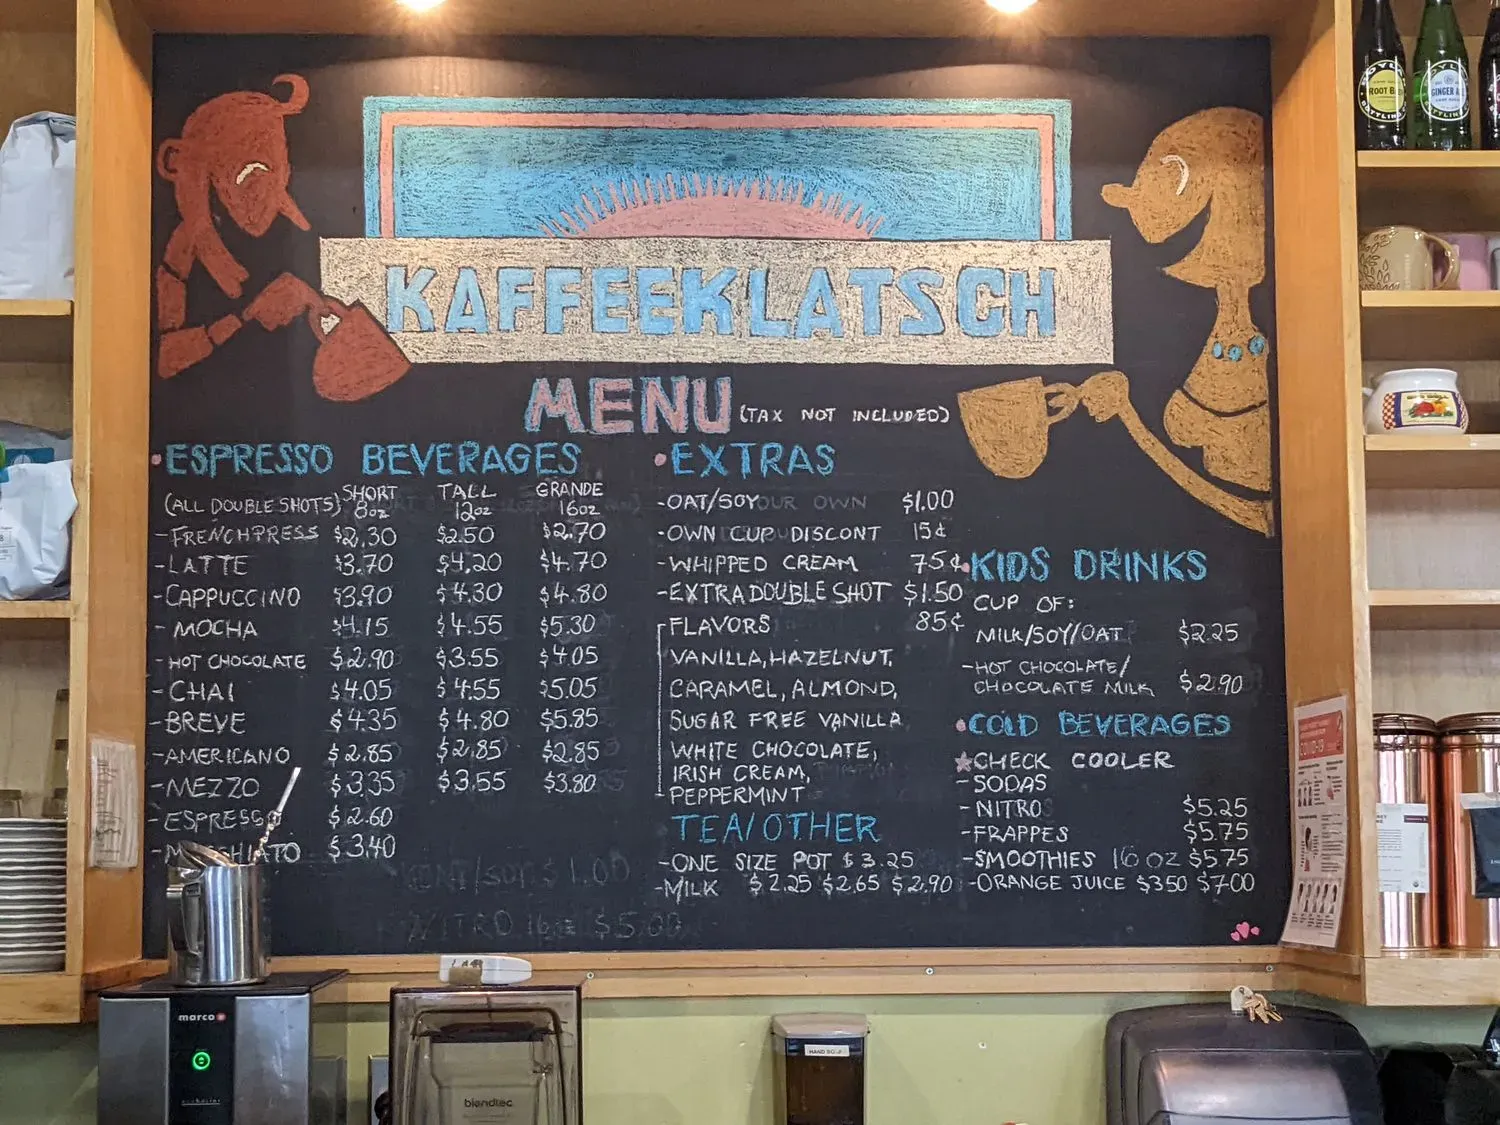 KAFFEEKLATSCH
MENU (TAX NOT INCLUDED)
ESPRESSO BEVERAGES
(ALL DOUBLE SHOTS) SHORT 8oz TALL 12oz GRANDE 16oz
-FRENCH PRESS $2.30 $2.50 $2.70
-LATTE $3.70 $4.20 $4.70
-CAPPUCCINO $3.90 $4.30 $4.80
-MOCHA $4.15 $4.55 $5.30
-HOT CHOCOLATE $2.90 $3.55 $4.05
-CHAI $4.05 $4.55 $5.05
-BREVE $4.35 $4.80 $5.85
-AMERICANO $2.85 $2.85 $2.85
-MEZZO $3.35 $3.55 $3.80
-ESPRESSO $2.60
$3.40
OAT/SOY $1.00
NITRO 16oz $5.00
EXTRAS
-OAT/SOY OUR OWN $1.00
-OWN CUP DISCONT 15¢
-WHIPPED CREAM 75¢
-EXTRA DOUBLE SHOT $1.50
FLAVORS 85¢
VANILLA, HAZELNUT,
CARAMEL, ALMOND,
SUGAR FREE VANILLA
WHITE CHOCOLATE,
IRISH CREAM,
PEPPERMINT
TEA/OTHER
-ONE SIZE POT $3.25
-MILK $2.25 $2.65 $2.90
KIDS DRINKS
CUP OF:
MILK/SOY/OAT $2.25
-HOT CHOCOLATE/
CHOCOLATE MILK $2.90
COLD BEVERAGES
CHECK COOLER
-SODAS
-NITRO $5.25
-FRAPPES $5.75
-SMOOTHIES 16 OZ $5.75
-ORANGE JUICE $3.50 $7.00
GINGER
COVID-19
marco
blendtec
HAND SOAP